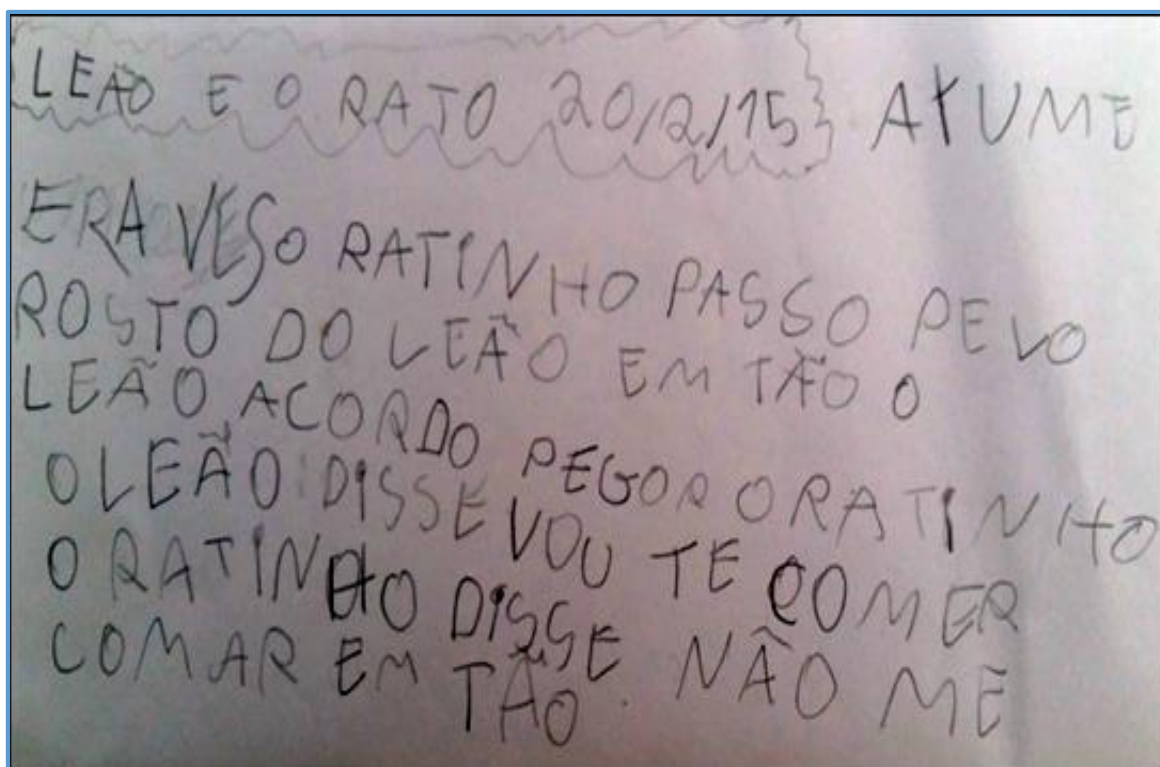 LEÃO E O RATO 20/2/15 AYUME
ERA VESO RATINHO PASSO PELO
ROSTO DO LEÃO EM TÃO O
LEÃO ACORDO PEGOR O RATINHO
O LEÃO DISSE VOU TE COMER
O RATINHO DISSE NÃO ME
COMAR EM TÃO.